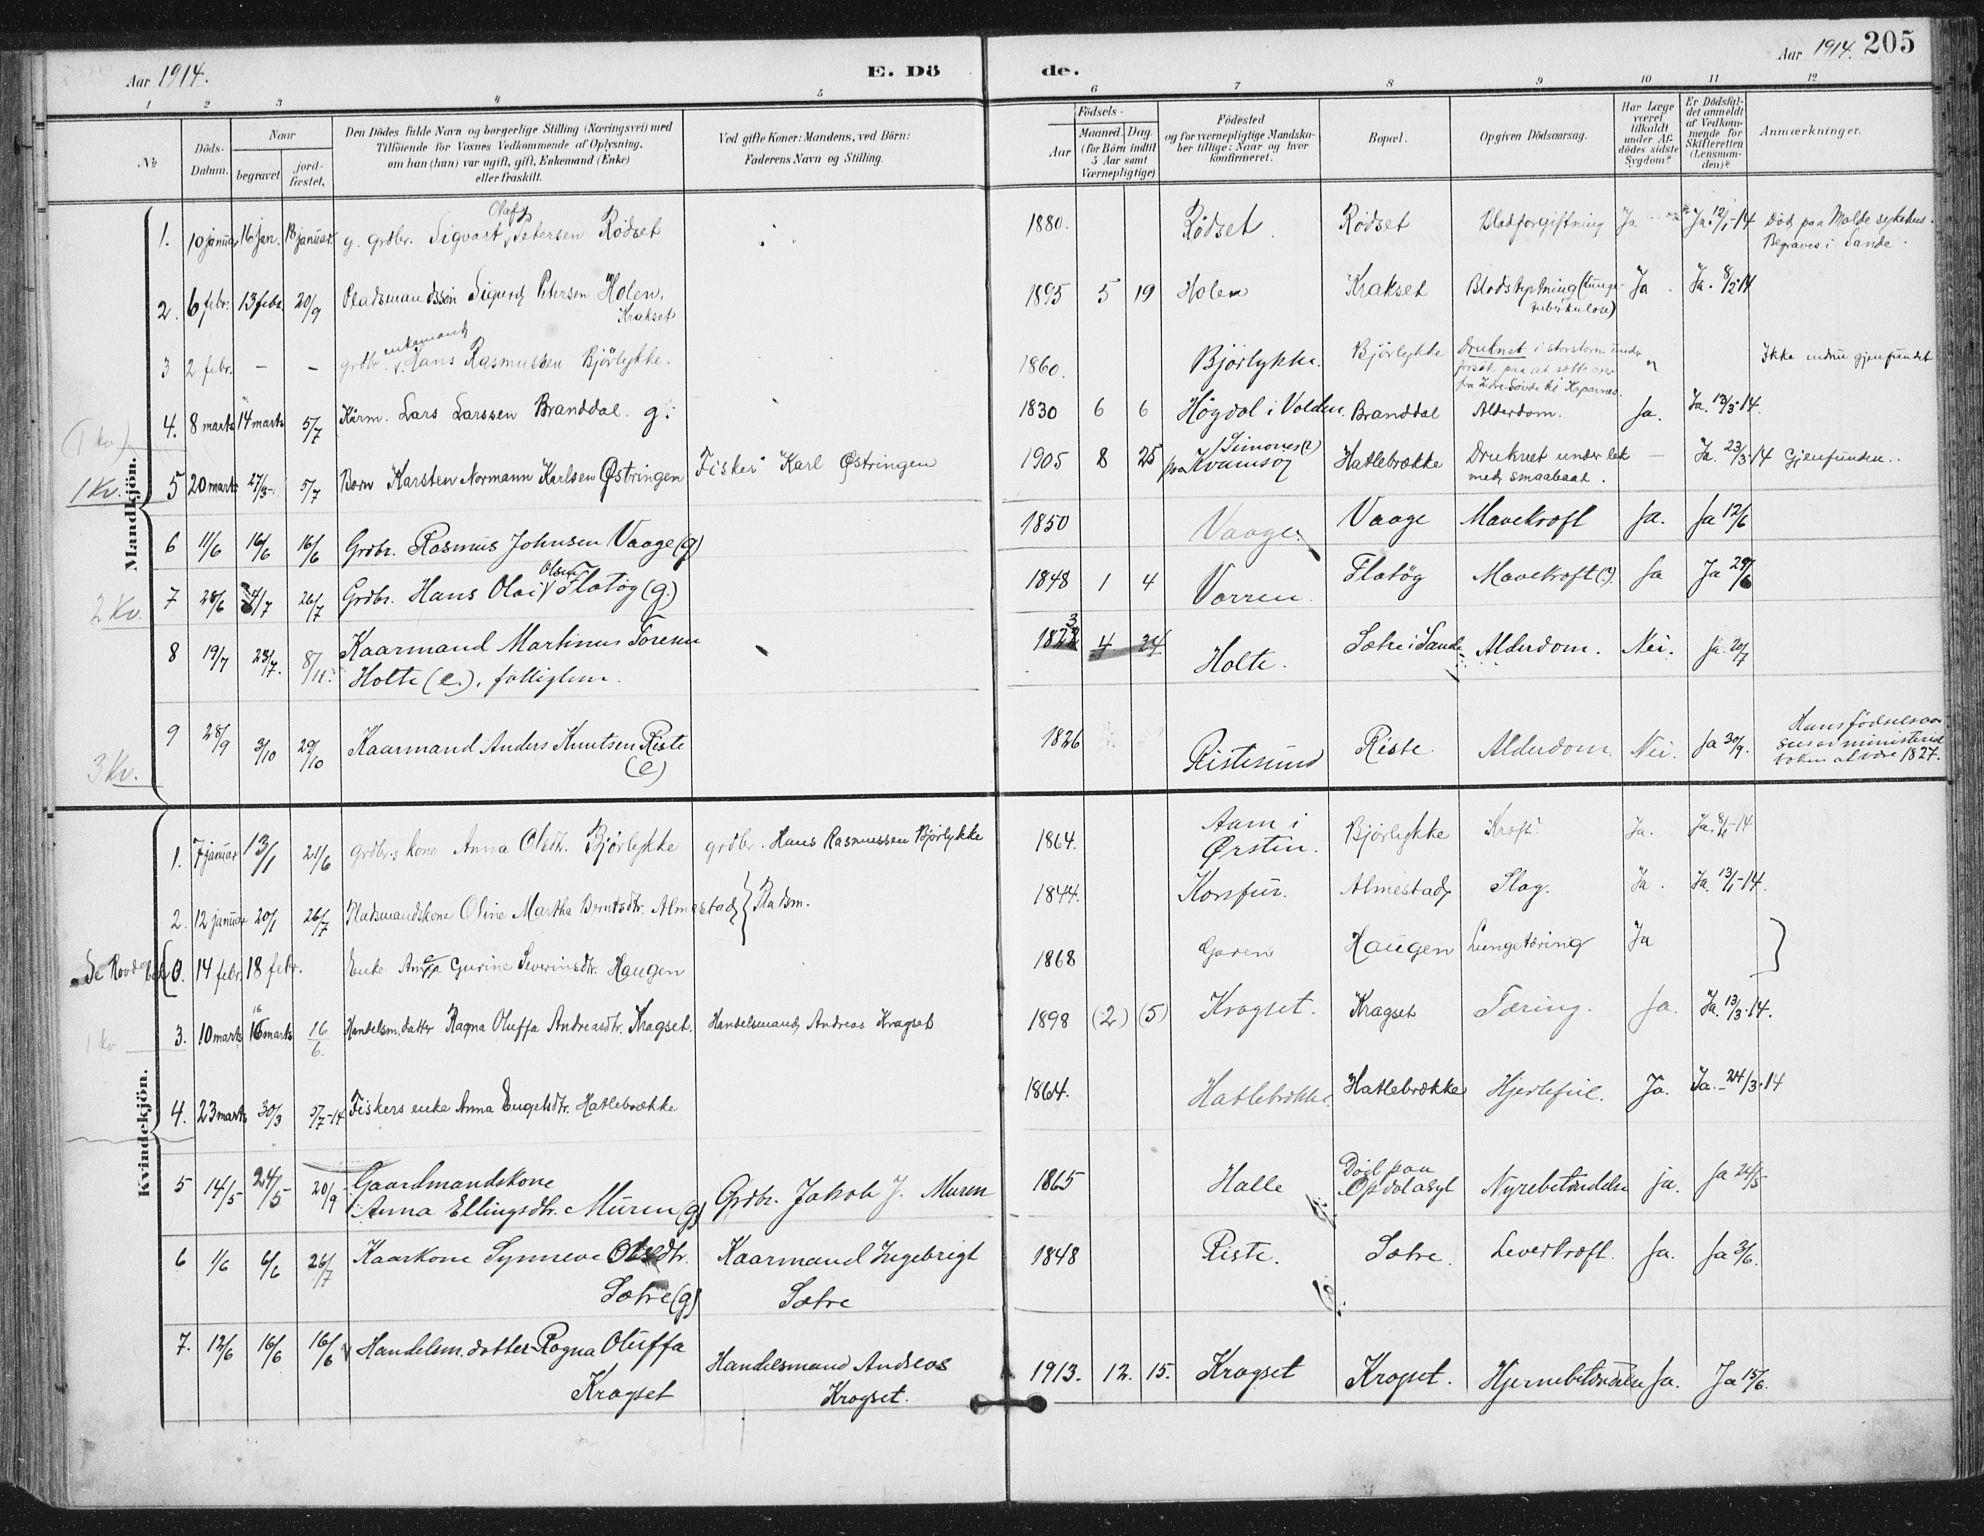 Aar 1914.
E. Dö
de.
Aar 1914. 205
1 2 3 4 5 6 7 8 9 10 11 12
No
Döds-
Datum.
Naar
begravet
jord-
fæstet.
Den Dödes fulde Navn og borgerlige Stilling (Næringsvei) med
Tilföiende for Voxnes Vedkommende af Oplysning,
om han (hun) var ugift, gift, Enkemand (Enke)
eller fraskilt.
Ved gifte Koner: Mandens, ved Börn:
Faderens Navn og Stilling.
Födsels-
Aar
Maaned. Dag.
(for Börn indtil
5 Aar samt
Værnepligtige)
Födested
og for værnepligtige Mandska-
ber tillige: Naar og hvor
konfirmeret.
Bopæl.
Opgiven Dödsaarsag.
Har Læge
været
tilkaldt
under Af-
dödes sidste
Sygdom?
Er Dödsfal-
det anmeldt
af Vedkom-
mende for
Skifteretten
(Lensman-
den)?
Anmærkninger.
Mandkjön.
1. 10 januar 16 jan. 18 januar. g. grdbr. Sigvart Olaf Petersen Rödset 1880. Rödset. Rödset Blodforgiftning Ja Ja. 12/1-14 Död paa Molde sykehus.
Begraves i Sande.
2. 6 febr. 13 febr. 20/9 Pladsmandssön Sigurd Petersen Holen,
Krakset 1895 5 19 Holen Krakset Blodstyrtning (lunge-
tuberkulose) Ja. Ja. 8/2-14
3 2 febr. - - grdbr. enkemand Hans Rasmussen Bjørlykke. 1860. Bjørlykke. Bjørlykke Druknet i storstorm under
forsøk paa at sætte over
Ikke endnu gjenfundet
(1 kv.)
4. 8 marts 14 marts 5/7 Kårm. Lars Larssen Branddal. g. 1830 6 6 Högdal i Volden Branddal Alderdom. Ja. Ja. 13/3-14.
1 Kv. 5 20 marts 27/3- 5/7 Barn Karsten Normann Karlsen Østringen Fisker Karl Østringen 1905 8 25 paa Kvamsöy Hatlebrække Druknet under lek
med smaabaat. - Ja. 23/3-14 Gjenfunden.
6 11/6 16/6 16/6 Grdbr. Rasmus Johnsen Vaage (g) 1850 Vaage. Vaage Mavekræft Ja. Ja 12/6
2 Kv. 7 28/6 4/7 26/7 Grdbr. Hans Olai Olsen Flatøy (g.) 1848 1 4 Vorren. Flatöy Mavekræft (?). Ja Ja 29/6
8 19/7 28/7. 8/11. Kaarmand Martinus Toresen
Holte (e.), fattiglem. 1823 4 24 Holte. Sætre i Sande Alderdom. Nei. Ja. 20/7
3 Kv. 9 28/9 3/10 29/10 Kaarmand Anders Knutsen Riste
(e) 1826 Ristesund Riste. Alderdom. Nei. Ja 30/9. Hans födselsaar
sees av ministerial
boken at være 1827.
Kvindekjön.
1. 7 januar 13/1 21/6 grdbr.s kone Anna Olsdtr. Bjørlykke grdbr. Hans Rasmussen Bjørlykke 1864. Aam i
Ørsten. Bjørlykke Kræft. Ja. Ja. 8/1-14
2. 12 januar 20/1 26/7 Pladsmandskone Oline Martha Berntsdtr. Almestad Pladsm. 1844. Korsfur. Almestad Slag. Ja. Ja. 13/1-14.
Se Rovde bok 0. 14 febr. 18 febr. Enke Anne Gurine Severinsdtr. Haugen 1868 Garen Haugen Lungetæring Ja
1 kv. 3. 10 marts 16 marts 16/6. Handelsm. datter Ragna Oluffa Andreasdtr. Kragset. Handelsmand Andreas Kragset 1898 (2) (5) Kragset. Kragset Tæring. Ja. Ja. 13/3-14.
4. 23 marts 30/3 5/7-14 Fiskers enke Anna Engelsdtr. Hatlebrække 1864. Hatlebrække. Hatlebrække Hjertefeil. Ja. Ja. 24/3-14
5 14/5 24/5 20/9 Gaardmandskone
Anna Ellingsdtr. Muren (g) Grdbr. Jakob J. Muren 1865 Halle Död paa
Opdølasyl Nyrebetændelse Ja. Ja 24/5
6 1/6 6/6 26/7 Kaarkone Synneve Olsdtr.
Sætre (g) Kaarmand Ingebrigt
Sætre 1848 Riste. Sætre. Leverkræft. Ja. Ja 3/6.
7. 12/6 16/6 16/6 Handelsm. datter Ragna Oluffa
Kragset Handelsmand Andreas
Kragset. 1913. 12. 15. Kragset Kragset. Hjernebetændelse Ja. Ja 15/6.